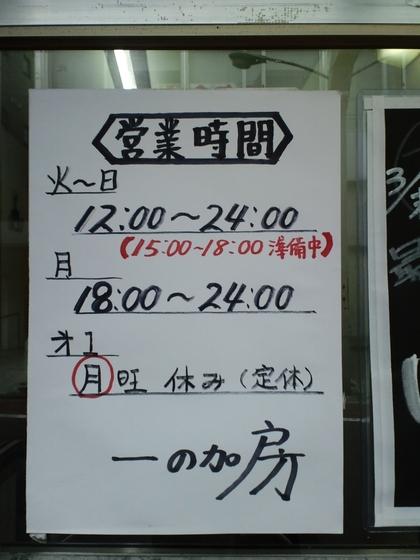 営業時間
火〜日
12:00〜24:00
(15:00~18:00 準備中)
月
18:00〜24:00
才1
月旺 休み(定休)
一の加房